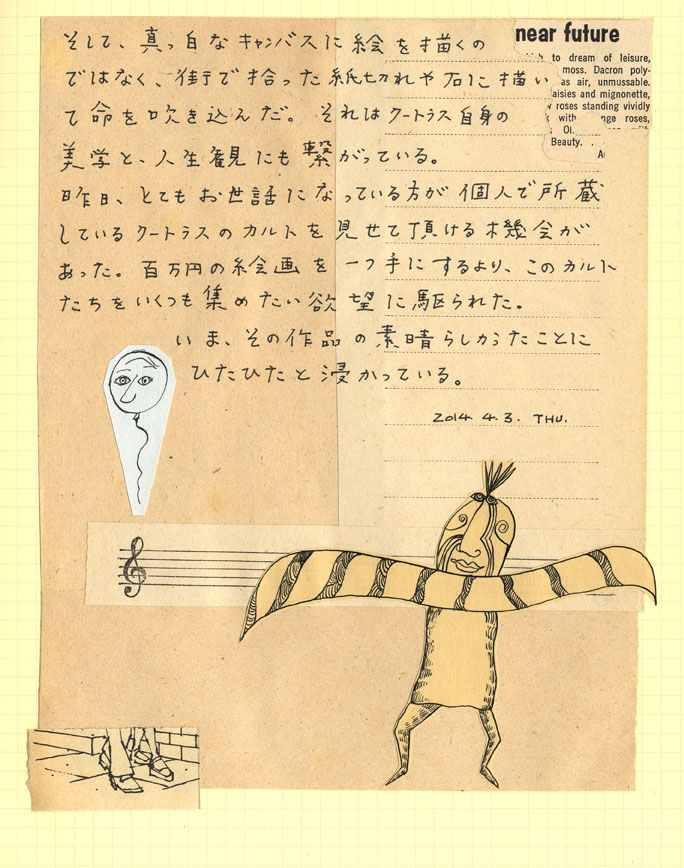 near future
to dream of leisure,
moss. Dacron poly-
as air, unmussable.
aisies and mignonette,
roses standing vividly
with nge roses,
Ol
Beauty. . .
A
そして、真っ白なキャンバスに絵を描くの
ではなく、街で拾った紙切れや石に描い
て命を吹き込んだ。それはクートラス自身の
美学と、人生観にも繋がっている。
昨日、とてもお世話になっている方が個人で所蔵
しているクートラスのカルトを見せて頂ける機会が
あった。百万円の絵画を一つ手にするより、このカルト
たちをいくつも集めたい欲望に駆られた。
いま、その作品の素晴らしかったことに
ひたひたと浸かっている。
2014. 4. 3. THU.